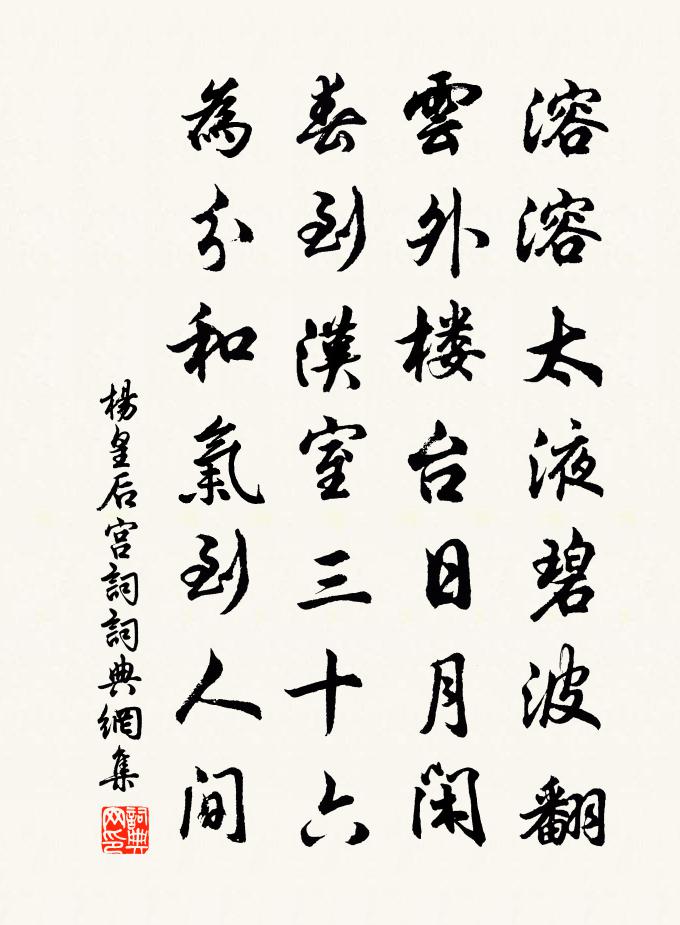 溶溶太液碧波翻
雲外楼台日月闲
春到漢室三十六
為分和氣到人间
楊皇后宫詞詞典網集
詞典网印